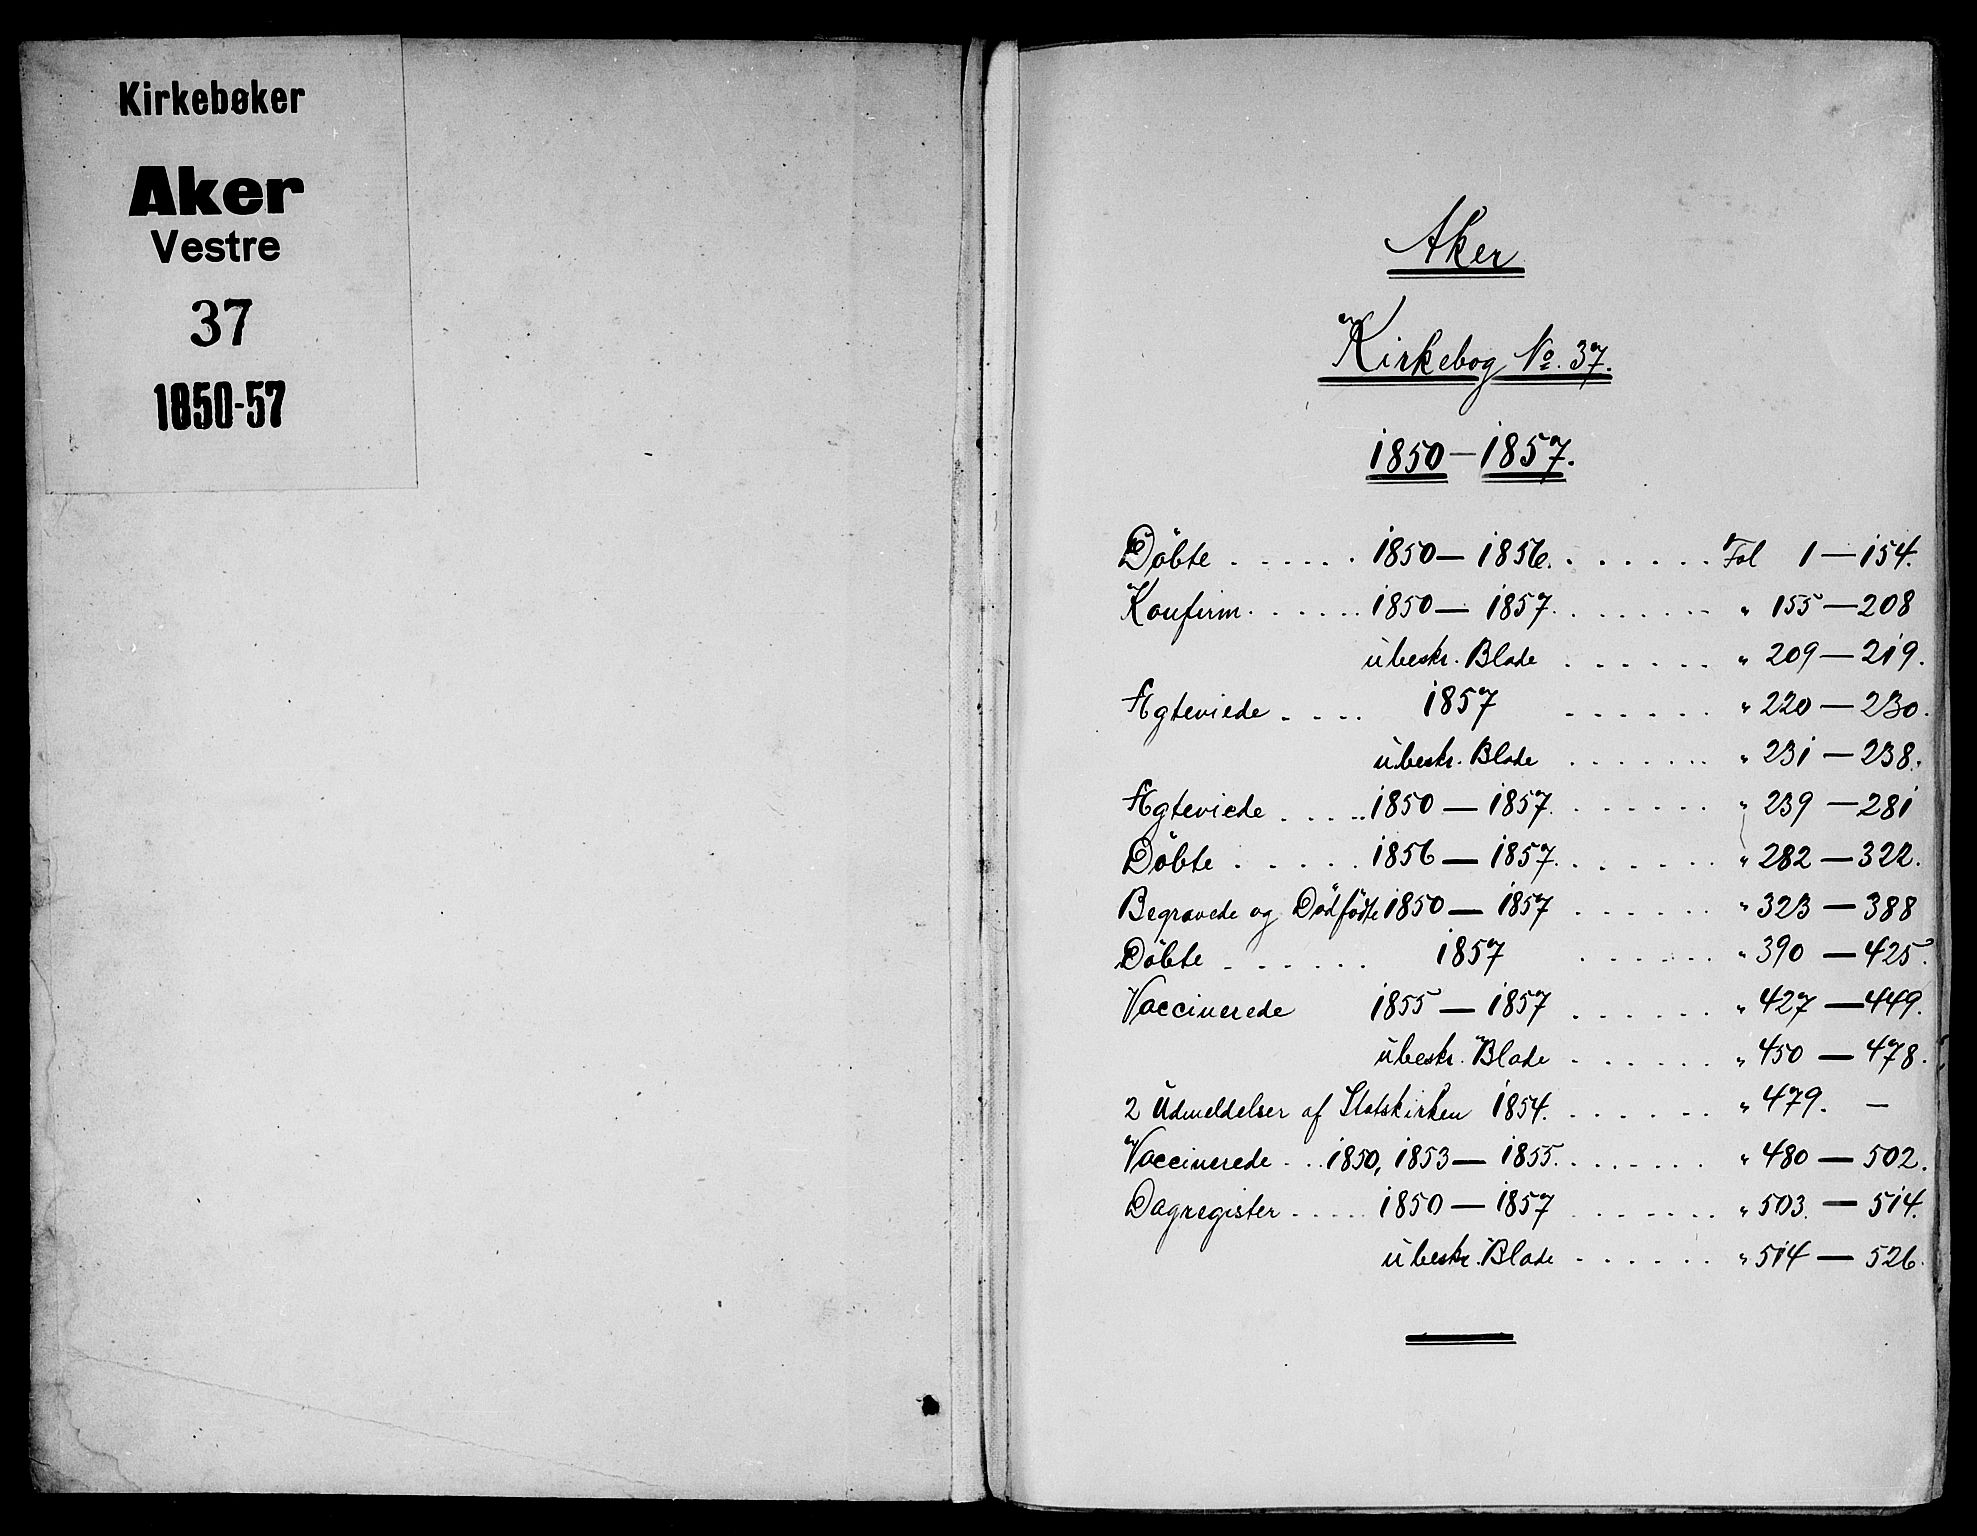 Kirkebøker
Aker
Vestre
37
1850-57
Aker
Kirkebog No. 37.
1850 — 1857.
Döbte . . . . . . 1850 — 1856. . . . . . . Fol 1 — 154.
Konfirm. . . . . . 1850 — 1857. . . . . . . " 155 — 208
ubeskr. Blade . . . . . . " 209 — 219.
Ægteviede . . . . 1857 . . . . . . " 220 — 230.
ubeskr. Blade . . . . . . " 231 — 238.
Ægteviede . . . . . 1850 — 1857. . . . . . . " 239 — 281
Döbte . . . . . 1856 — 1857. . . . . . . " 282 — 322.
Begravede og Dödfödte 1850 — 1857 . . . . . . " 323 — 388
Döbte . . . . . . 1857 . . . . . . " 390 — 425.
Vaccinerede 1855 — 1857 . . . . . . " 427 — 449.
ubeskr. Blade . . . . . . " 450 — 478.
2 Udmeldelser af Statskirken 1854. . . . . . . " 479. —
Vaccinerede . . . 1850, 1853 — 1855. . . . . . . " 480 — 502.
Dagregister . . . . . 1850 — 1857 . . . . . . " 503. — 514.
ubeskr. Blade . . . . . . " 514 — 526.